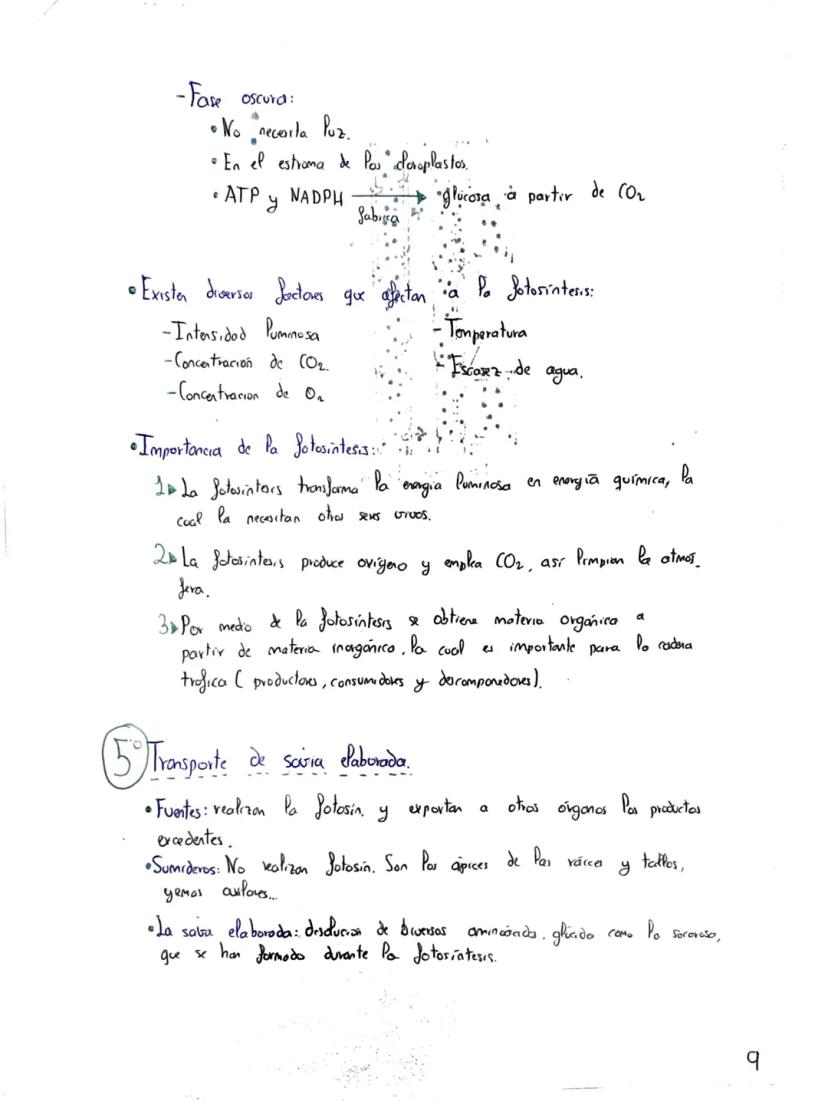 -Fase oscura:
• No necesita luz.
• En el estroma de los cloroplastos.
• ATP y NADPH → glucosa a partir de CO2
fabrica
• Existen diversos factores que afectan a la fotosíntesis:
-Intensidad luminosa
-Temperatura
-Concentración de CO2.
-Escasez de agua.
-Concentracion de O2
• Importancia de la fotosíntesis:
1▸ La fotosíntesis transforma la energía luminosa en energía química, la
cual la necesitan otros seres vivos.
2▸ La fotosíntesis produce oxígeno y emplea CO2, así limpian la atmos-
fera.
3▸ Por medio de la fotosíntesis se obtiene materia orgánica a
partir de materia inorgánica, la cual es importante para la cadena
trofica ( productores, consumidores y descomponedores).
5º Transporte de savia elaborada.
• Fuentes: realizan la fotosin. y exportan a otros órganos los productos
excedentes.
• Sumideros: No realizan fotosin. Son los ápices de las raíces y tallos,
yemas axilares...
• La savia elaborada: disolución de diversos aminoácidos, glúcidos como la sacarosa,
que se han formado durante la fotosíntesis.
9